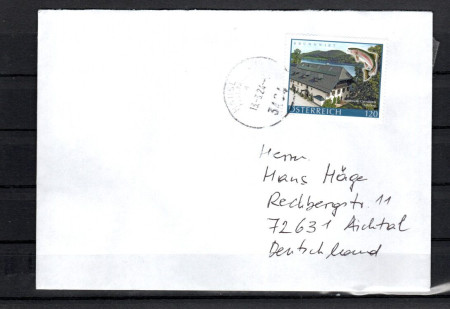 ÖSTERREICH 120
Herrn
Hans Häge
Rechbergstr. 11
72631 Aichtal
Deutschland